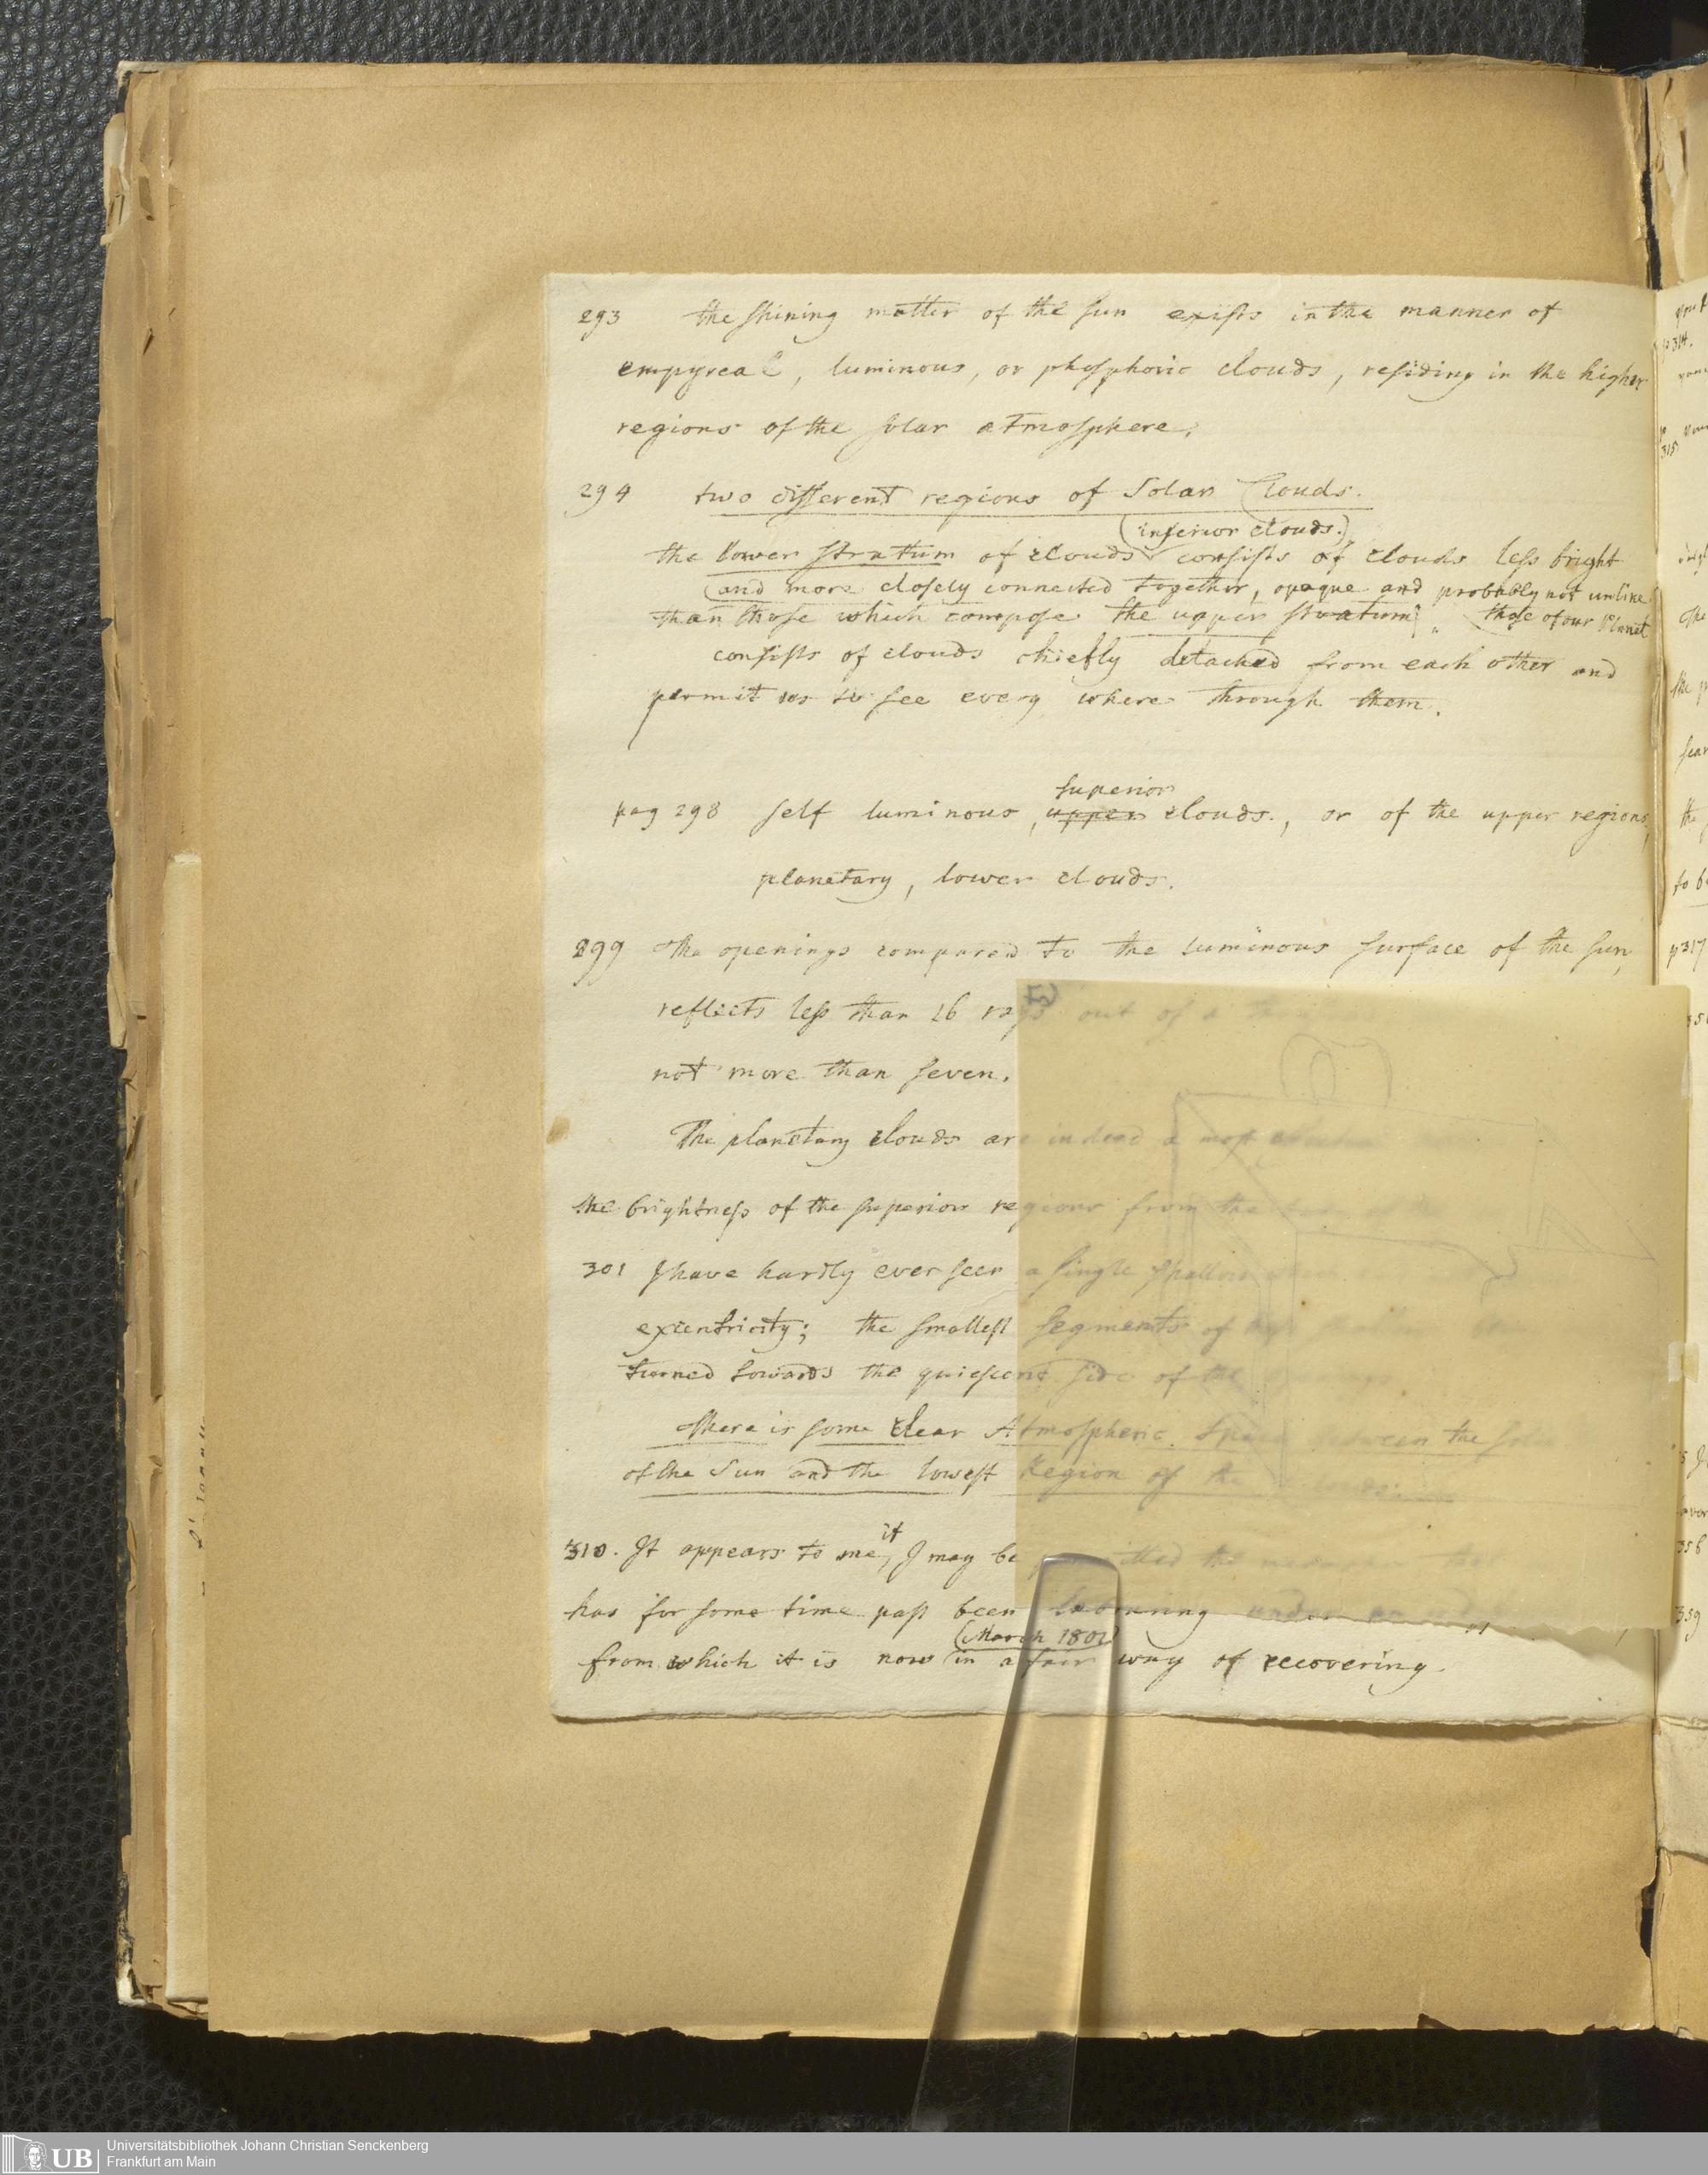 293 the shining matter of the sun exists in the manner of
empyreal, luminous, or phosphoric clouds, residing in the higher
regions of the solar atmosphere,
294 two different regions of Solar Clouds.
(inferior clouds.)
the lower stratum of clouds consists of clouds less bright
(and more closely connected together, opaque and probably not unlike
than those which compose the upper stratum; those of our Planet
consists of clouds chiefly detached from each other and
permit us to see every where through them.
superior
pag 298 self luminous, upper clouds., or of the upper regions,
planetary, lower clouds.
299 the openings compared to the luminous surface of the sun,
reflects less than 16 rays out of a
not more than seven.
The planetary clouds are indeed a most
the brightness of the superior regions from the
301 I have hardly ever seen a single shallow
excentricity; the smallest segments of
turned towards the quiescent side of the
There is some clear Atmospheric Space between the
of the Sun and the lowest Region of the
it
310. It appears to me, I may be the
has for some time past been labouring under
(March 1801)
from which it is now in a fair way of recovering.
p317
UB
Universitätsbibliothek Johann Christian Senckenberg
Frankfurt am Main